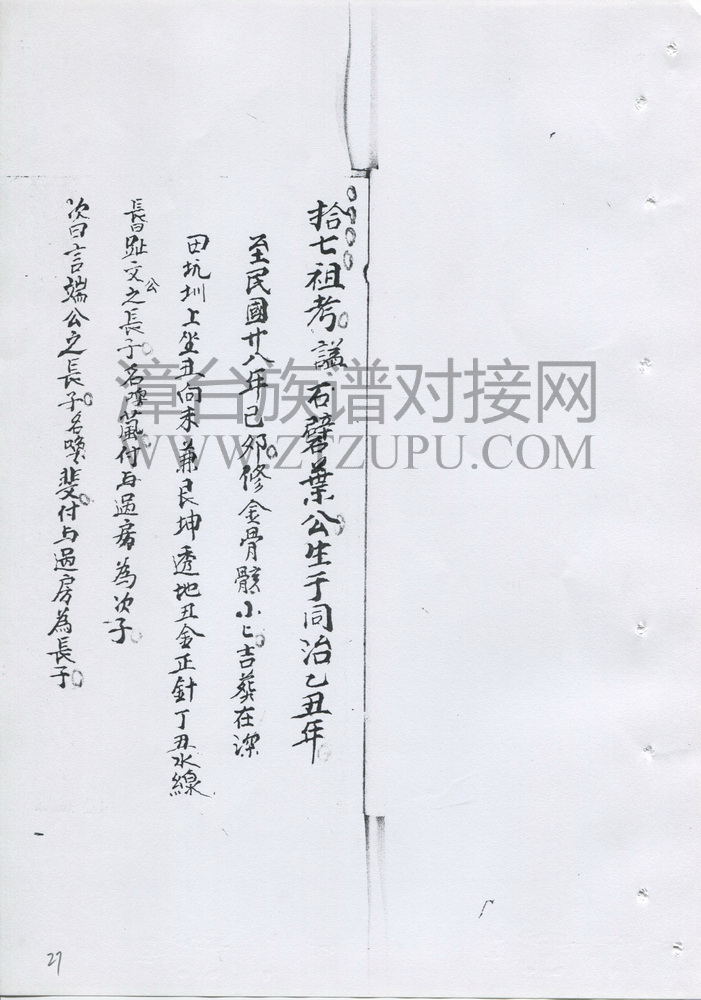 拾七祖考謚石礕葉公生于同治乙丑年
至民國廿八年己卯修金骨骸小〻吉葬在深
田坑圳上坐丑向未兼艮坤透地丑金正針丁丑水線
長曰趾文公之長子名 付与過房為次子
次曰言端公之長子名喚斐付与過房為長子
漳台族谱对接网
WWW.ZTZUPU.COM
27